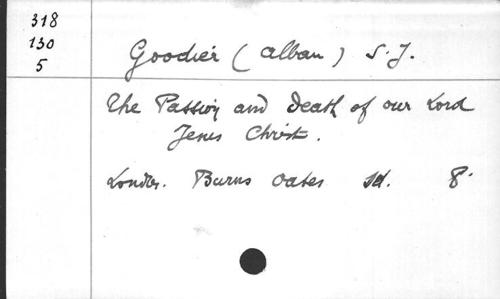 318
130
5
Goodier (Alban) S.J.
The Passion and Death of our Lord
Jesus Christ.
London. Burns Oates sd. 8°